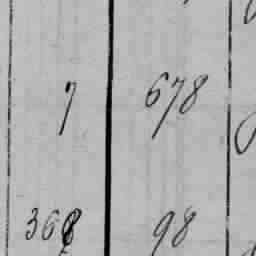 7 678
368 98